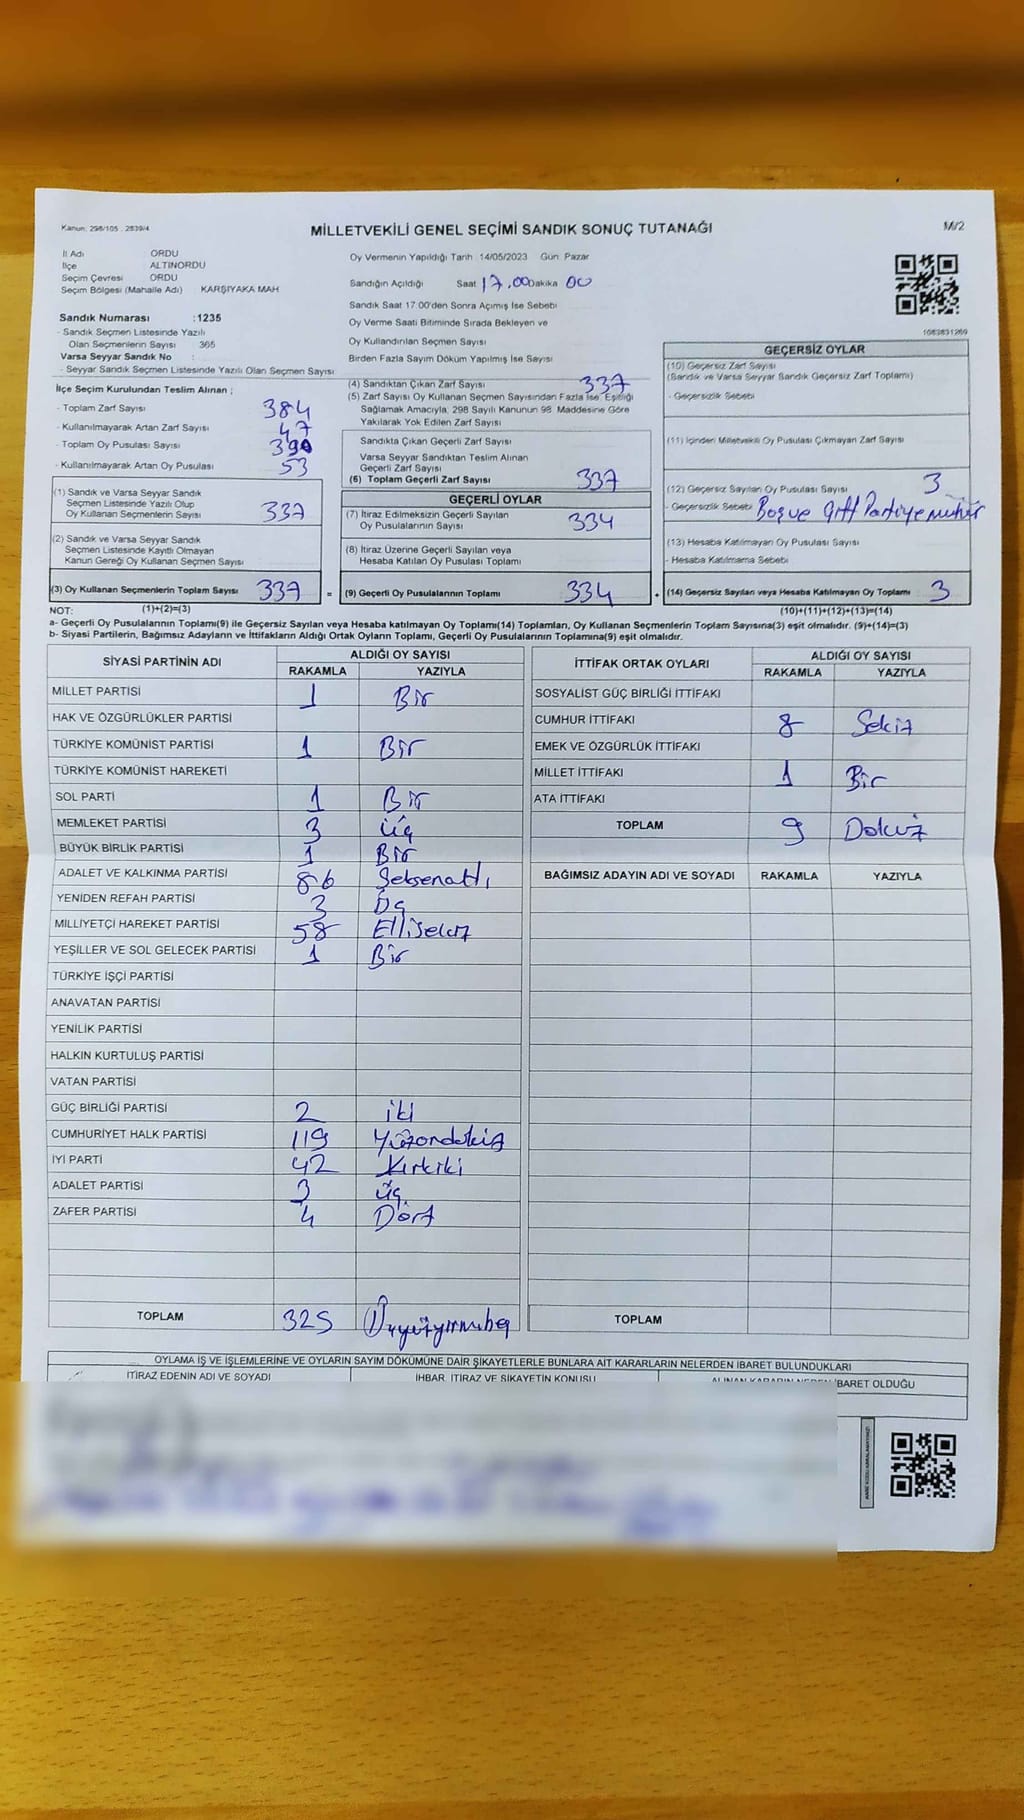 Kanun: 298/105 . 2839/4
MİLLETVEKİLİ GENEL SEÇİMİ SANDIK SONUÇ TUTANAĞI
M/2
İl Adı ORDU
İlçe ALTINORDU
Seçim Çevresi ORDU
Seçim Bölgesi (Mahalle Adı) KARŞIYAKA MAH
Sandık Numarası :1235
- Sandık Seçmen Listesinde Yazılı
Olan Seçmenlerin Sayısı 365
Varsa Seyyar Sandık No :
- Seyyar Sandık Seçmen Listesinde Yazılı Olan Seçmen Sayısı
Oy Vermenin Yapıldığı Tarih 14/05/2023 Gün Pazar
Sandığın Açıldığı Saat 17.00 Dakika 00
Sandık Saat 17.00'den Sonra Açımış İse Sebebi
Oy Verme Saati Bitiminde Sırada Bekleyen ve
Oy Kullandırılan Seçmen Sayısı
Birden Fazla Sayım Döküm Yapılmış İse Sayısı
1083831269
İlçe Seçim Kurulundan Teslim Alınan ;
- Toplam Zarf Sayısı 384
- Kullanılmayarak Artan Zarf Sayısı 47
- Toplam Oy Pusulası Sayısı 390
- Kullanılmayarak Artan Oy Pusulası 53
(1) Sandık ve Varsa Seyyar Sandık
Seçmen Listesinde Yazılı Olup
Oy Kullanan Seçmenlerin Sayısı 337
(2) Sandık ve Varsa Seyyar Sandık
Seçmen Listesinde Kayıtlı Olmayan
Kanun Gereği Oy Kullanan Seçmen Sayısı
(3) Oy Kullanan Seçmenlerin Toplam Sayısı 337 =
(4) Sandıktan Çıkan Zarf Sayısı 337
(5) Zarf Sayısı Oy Kullanan Seçmen Sayısından Fazla İse, Eşitliği
Sağlamak Amacıyla, 298 Sayılı Kanunun 98. Maddesine Göre
Yakılarak Yok Edilen Zarf Sayısı
Sandıkta Çıkan Geçerli Zarf Sayısı
Varsa Seyyar Sandıktan Teslim Alınan
Geçerli Zarf Sayısı
(6) Toplam Geçerli Zarf Sayısı 337
GEÇERLİ OYLAR
(7) İtiraz Edilmeksizin Geçerli Sayılan
Oy Pusulalarının Sayısı 334
(8) İtiraz Üzerine Geçerli Sayılan veya
Hesaba Katılan Oy Pusulası Toplamı
(9) Geçerli Oy Pusulalarının Toplamı 334 +
GEÇERSİZ OYLAR
(10) Geçersiz Zarf Sayısı
(Sandık ve Varsa Seyyar Sandık Geçersiz Zarf Toplamı)
- Geçersizlik Sebebi
(11) İçinden Milletvekili Oy Pusulası Çıkmayan Zarf Sayısı
(12) Geçersiz Sayılan Oy Pusulası Sayısı 3
- Geçersizlik Sebebi Boş ve Çift Partiye mühür
(13) Hesaba Katılmayan Oy Pusulası Sayısı
- Hesaba Katılmama Sebebi
(14) Geçersiz Sayılan veya Hesaba Katılmayan Oy Toplamı 3
NOT: (1)+(2)=(3)
(10)+(11)+(12)+(13)=(14)
a- Geçerli Oy Pusulasının Toplamı(9) ile Geçersiz Sayılan veya Hesaba katılmayan Oy Toplamı(14) Toplamları, Oy Kullanan Seçmenlerin Toplam Sayısına(3) eşit olmalıdır. (9)+(14)=(3)
b- Siyasi Partilerin, Bağımsız Adayların ve İttifakların Aldığı Ortak Oyların Toplamı, Geçerli Oy Pusulalarının Toplamına(9) eşit olmalıdır.
SİYASİ PARTİNİN ADI ALDIĞI OY SAYISI
RAKAMLA YAZIYLA
MİLLET PARTİSİ 1 Bir
HAK VE ÖZGÜRLÜKLER PARTİSİ
TÜRKİYE KOMÜNİST PARTİSİ 1 Bir
TÜRKİYE KOMÜNİST HAREKETİ
SOL PARTİ 1 Bir
MEMLEKET PARTİSİ 3 Üç
BÜYÜK BİRLİK PARTİSİ 1 Bir
ADALET VE KALKINMA PARTİSİ 86 Seksenaltı
YENİDEN REFAH PARTİSİ 3 Üç
MİLLİYETÇİ HAREKET PARTİSİ 58 Ellisekiz
YEŞİLLER VE SOL GELECEK PARTİSİ 1 Bir
TÜRKİYE İŞÇİ PARTİSİ
ANAVATAN PARTİSİ
YENİLİK PARTİSİ
HALKIN KURTULUŞ PARTİSİ
VATAN PARTİSİ
GÜÇ BİRLİĞİ PARTİSİ 2 iki
CUMHURİYET HALK PARTİSİ 119 Yüzondokuz
İYİ PARTİ 42 Kırkiki
ADALET PARTİSİ 3 üç
ZAFER PARTİSİ 4 Dört
TOPLAM 325 Üçyüzyirmibeş
İTTİFAK ORTAK OYLARI ALDIĞI OY SAYISI
RAKAMLA YAZIYLA
SOSYALİST GÜÇ BİRLİĞİ İTTİFAKI
CUMHUR İTTİFAKI 8 Sekiz
EMEK VE ÖZGÜRLÜK İTTİFAKI
MİLLET İTTİFAKI 1 Bir
ATA İTTİFAKI
TOPLAM 9 Dokuz
BAĞIMSIZ ADAYIN ADI VE SOYADI RAKAMLA YAZIYLA
TOPLAM
OYLAMA İŞ VE İŞLEMLERİNE VE OYLARIN SAYIM DÖKÜMÜNE DAİR ŞİKAYETLERLE BUNLARA AİT KARARLARIN NELERDEN İBARET BULUNDUKLARI
İTİRAZ EDENİN ADI VE SOYADI
İHBAR, İTİRAZ VE ŞİKAYETİN KONUSU
ALINAN KARARIN NEDEN İBARET OLDUĞU